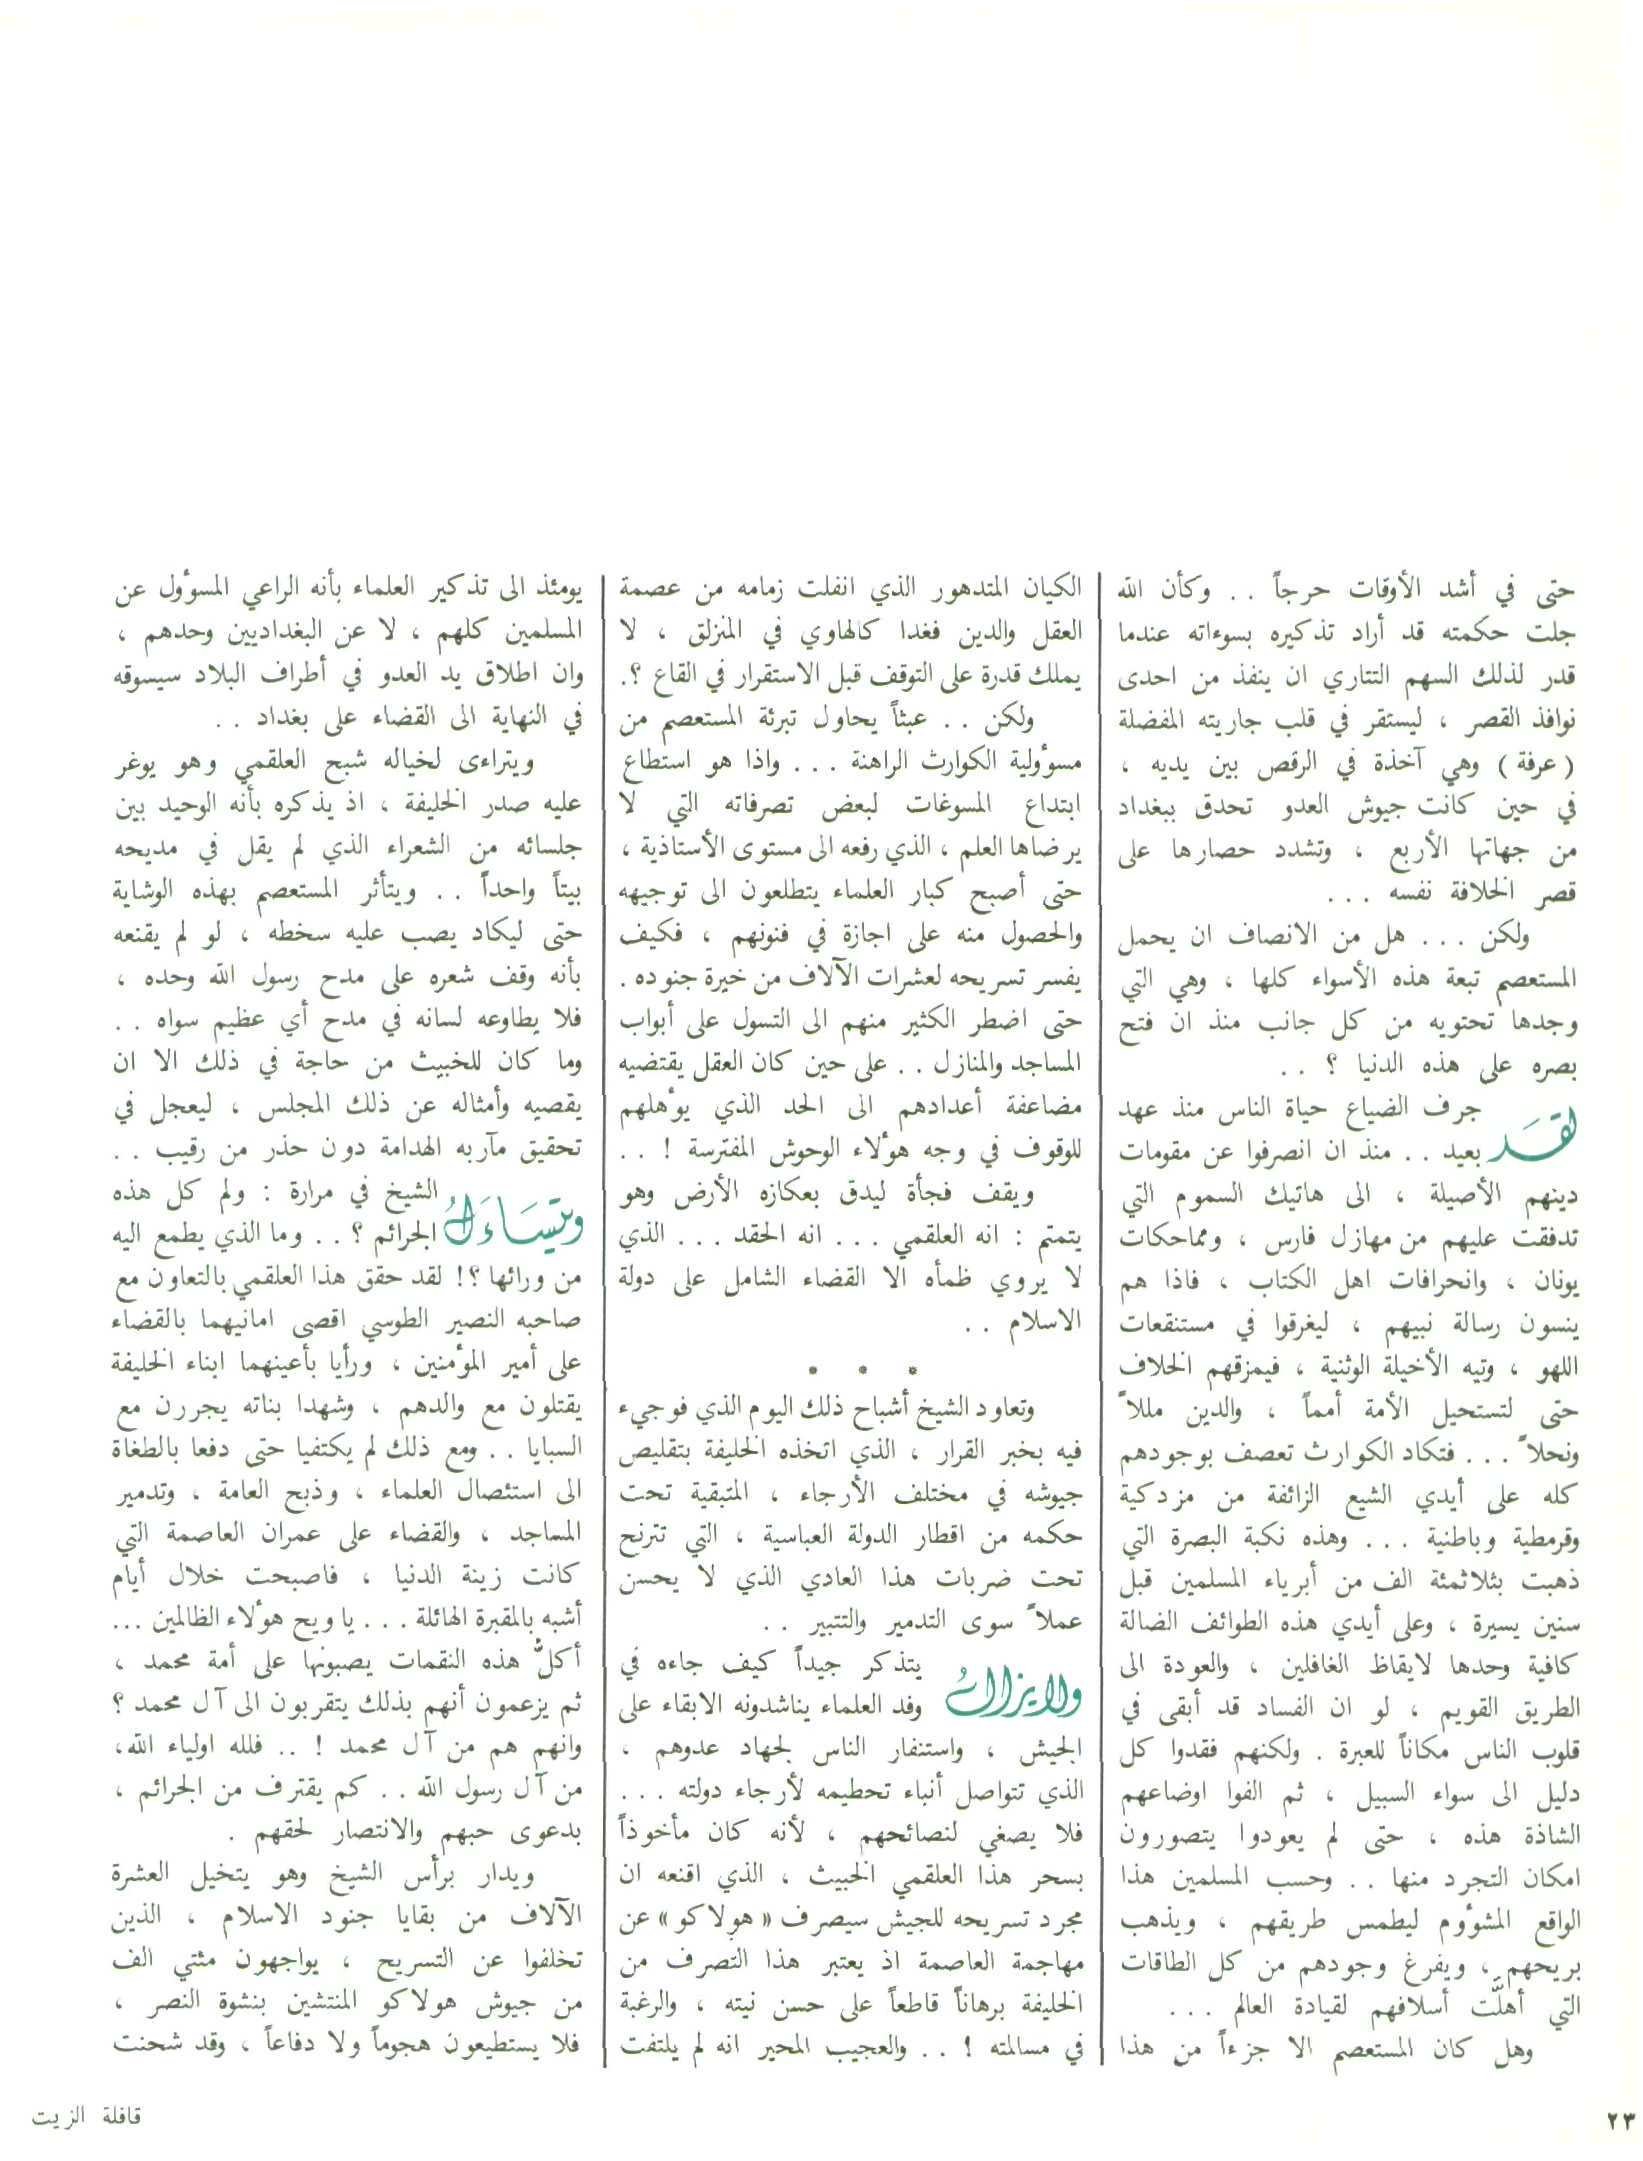 حتى في أشد الأوقات حرجاً . . وكأن الله
جلت حكمته قد أراد تذكيره بسوءاته عندما
قدر لذلك السهم التتاري ان ينفذ من احدى
نوافذ القصر ، ليستقر في قلب جاريته المفضلة
( عرفة ) وهي آخذة في الرقص بين يديه ،
في حين كانت جيوش العدو تحدق ببغداد
من جهاتها الأربع ، وتشدد حصارها على
قصر الخلافة نفسه . . .
ولكن . . . هل من الانصاف ان يحمل
المستعصم تبعة هذه الأسواء كلها ، وهي التي
وجدها تحتويه من كل جانب منذ ان فتح
بصره على هذه الدنيا ؟ . .
لقد جرف الضياع حياة الناس منذ عهد
بعيد . . منذ ان انصرفوا عن مقومات
دينهم الأصيلة ، الى هاتيك السموم التي
تدفقت عليهم من مهازل فارس ، ومماحكات
يونان ، وانحرافات اهل الكتاب ، فاذا هم
ينسون رسالة نبيهم ، ليغرقوا في مستنقعات
اللهو ، وتيه الأخيلة الوثنية ، فيمزقهم الخلاف
حتى لتستحيل الأمة أمماً ، والدين مللاً
ونحلاً . . . فتكاد الكوارث تعصف بوجودهم
كله على أيدي الشيع الزائفة من مزدكية
وقرمطية وباطنية . . . وهذه نكبة البصرة التي
ذهبت بثلاثمئة الف من أبرياء المسلمين قبل
سنين يسيرة ، وعلى أيدي هذه الطوائف الضالة
كافية وحدها لايقاظ الغافلين ، والعودة الى
الطريق القويم ، لو ان الفساد قد أبقى في
قلوب الناس مكاناً للعبرة . ولكنهم فقدوا كل
دليل الى سواء السبيل ، ثم الفوا اوضاعهم
الشاذة هذه ، حتى لم يعودوا يتصورون
امكان التجرد منها . . وحسب المسلمين هذا
الواقع المشؤوم ليطمس طريقهم ، ويذهب
بريحهم ، ويفرغ وجودهم من كل الطاقات
التي أهلّت أسلافهم لقيادة العالم . . .
وهل كان المستعصم الا جزءاً من هذا
الكيان المتدهور الذي انفلت زمامه من عصمة
العقل والدين فغدا كالهاوي في المنزلق ، لا
يملك قدرة على التوقف قبل الاستقرار في القاع ؟.
ولكن . . عبثاً يحاول تبرئة المستعصم من
مسؤولية الكوارث الراهنة . . . واذا هو استطاع
ابتداع المسوغات لبعض تصرفاته التي لا
يرضاها العلم ، الذي رفعه الى مستوى الأستاذية ،
حتى أصبح كبار العلماء يتطلعون الى توجيهه
والحصول منه على اجازة في فنونهم ، فكيف
يفسر تسريحه لعشرات الآلاف من خيرة جنوده .
حتى اضطر الكثير منهم الى التسول على أبواب
المساجد والمنازل . . على حين كان العقل يقتضيه
مضاعفة أعدادهم الى الحد الذي يؤهلهم
للوقوف في وجه هؤلاء الوحوش المفترسة ! . .
ويقف فجأة ليدق بعكازه الأرض وهو
يتمتم : انه العلقمي . . . انه الحقد . . . الذي
لا يروي ظمأه الا القضاء الشامل على دولة
الاسلام . .
* * *
وتعاود الشيخ أشباح ذلك اليوم الذي فوجيء
فيه بخبر القرار ، الذي اتخذه الخليفة بتقليص
جيوشه في مختلف الأرجاء ، المتبقية تحت
حكمه من اقطار الدولة العباسية ، التي تترنح
تحت ضربات هذا العادي الذي لا يحسن
عملاً سوى التدمير والتتبير . .
ولا يزال يتذكر جيداً كيف جاءه في
وفد العلماء يناشدونه الابقاء على
الجيش ، واستنفار الناس لجهاد عدوهم ،
الذي تتواصل أنباء تحطيمه لأرجاء دولته . . .
فلا يصغي لنصائحهم ، لأنه كان مأخوذاً
بسحر هذا العلقمي الخبيث ، الذي اقنعه ان
مجرد تسريحه للجيش سيصرف « هولاكو » عن
مهاجمة العاصمة اذ يعتبر هذا التصرف من
الخليفة برهاناً قاطعاً على حسن نيته ، والرغبة
في مسالمته ! . . والعجيب المحير انه لم يلتفت
يومئذ الى تذكير العلماء بأنه الراعي المسؤول عن
المسلمين كلهم ، لا عن البغداديين وحدهم ،
وان اطلاق يد العدو في أطراف البلاد سيسوقه
في النهاية الى القضاء على بغداد . .
ويتراءى لخياله شبح العلقمي وهو يوغر
عليه صدر الخليفة ، اذ يذكره بأنه الوحيد بين
جلسائه من الشعراء الذي لم يقل في مديحه
بيتاً واحداً . . ويتأثر المستعصم بهذه الوشاية
حتى ليكاد يصب عليه سخطه ، لو لم يقنعه
بأنه وقف شعره على مدح رسول الله وحده ،
فلا يطاوعه لسانه في مدح أي عظيم سواه . .
وما كان للخبيث من حاجة في ذلك الا ان
يقصيه وأمثاله عن ذلك المجلس ، ليعجل في
تحقيق مآربه الهدامة دون حذر من رقيب . .
ويتساءل الشيخ في مرارة : ولم كل هذه
الجرائم ؟ . . وما الذي يطمع اليه
من ورائها ؟! لقد حقق هذا العلقمي بالتعاون مع
صاحبه النصير الطوسي اقصى امانيهما بالقضاء
على أمير المؤمنين ، ورأيا بأعينهما ابناء الخليفة
يقتلون مع والدهم ، وشهدا بناته يجررن مع
السبايا . . ومع ذلك لم يكتفيا حتى دفعا بالطغاة
الى استئصال العلماء ، وذبح العامة ، وتدمير
المساجد ، والقضاء على عمران العاصمة التي
كانت زينة الدنيا ، فاصبحت خلال أيام
أشبه بالمقبرة الهائلة . . . يا ويح هؤلاء الظالمين ...
أكلُّ هذه النقمات يصبونها على أمة محمد ،
ثم يزعمون أنهم بذلك يتقربون الى آل محمد ؟
وانهم هم من آل محمد ! . . فلله اولياء الله،
من آل رسول الله . . كم يقترف من الجرائم ،
بدعوى حبهم والانتصار لحقهم .
ويدار برأس الشيخ وهو يتخيل العشرة
الآلاف من بقايا جنود الاسلام ، الذين
تخلفوا عن التسريح ، يواجهون مئتي الف
من جيوش هولاكو المنتشين بنشوة النصر ،
فلا يستطيعون هجوماً ولا دفاعاً ، وقد شحنت
٢٣
قافلة الزيت